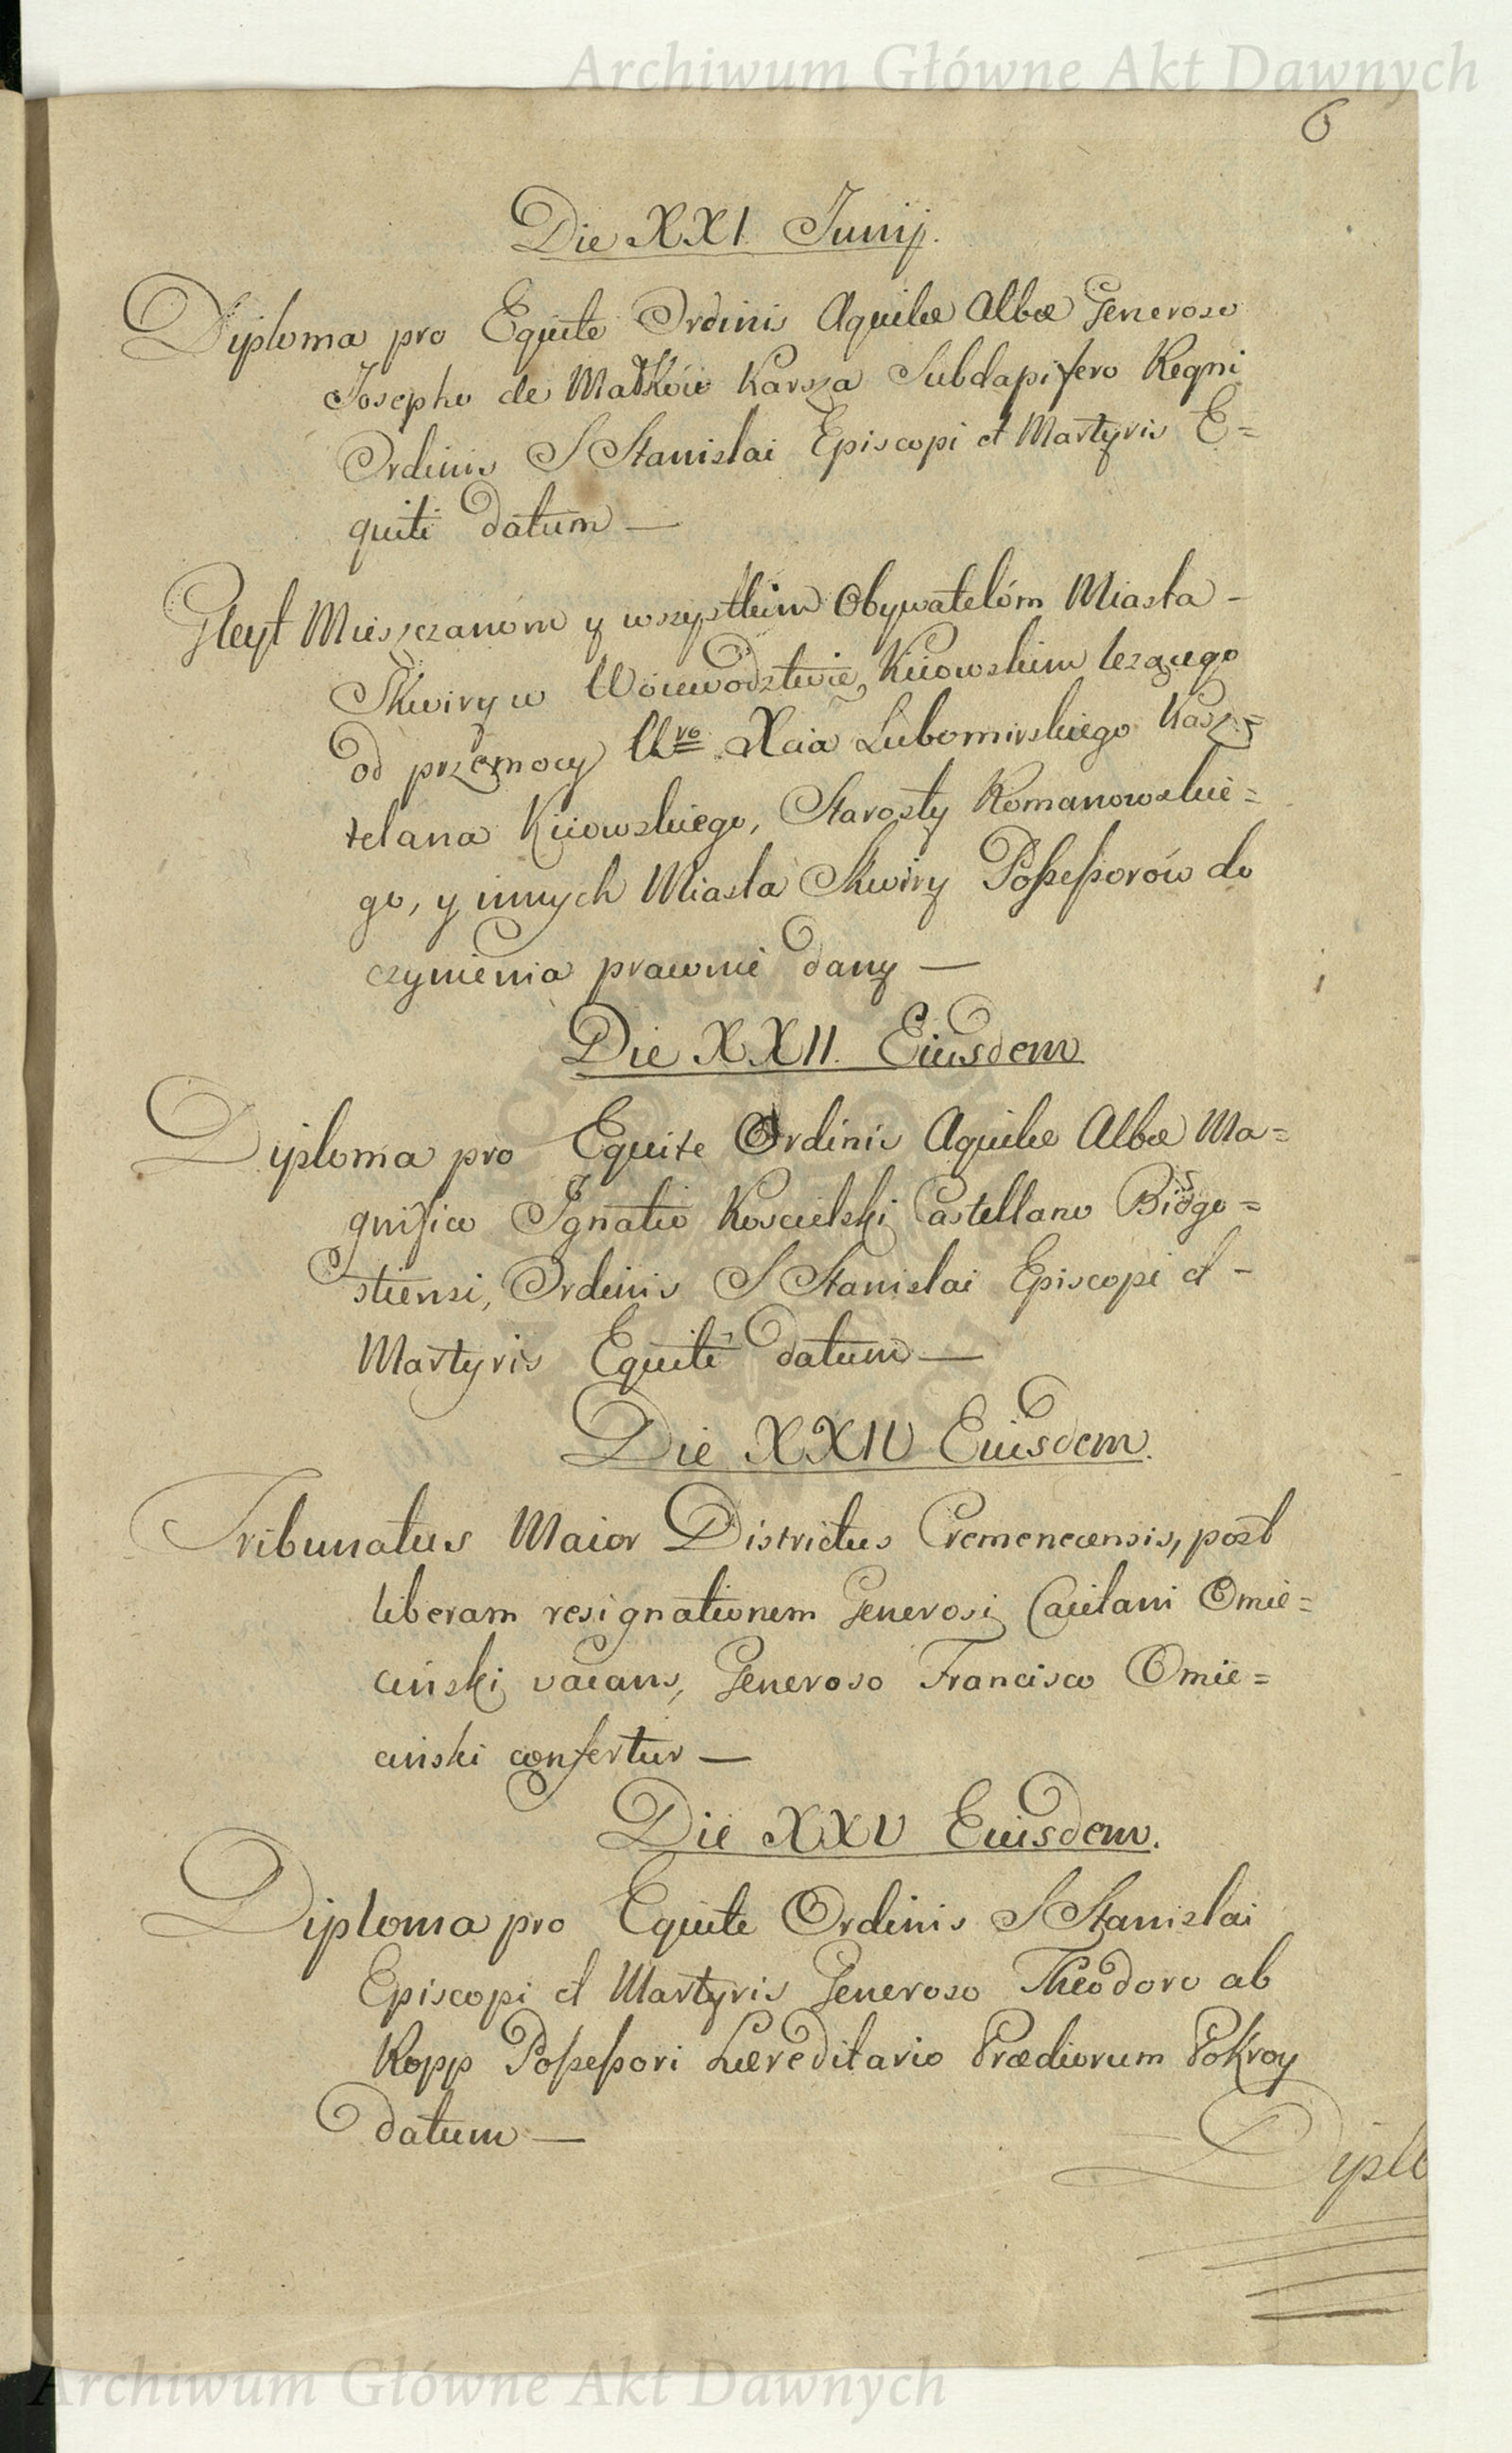 Archiwum Główne Akt Dawnych
6
Die XXI Junij.
Dyploma pro Equite Ordinis Aquilæ Albæ Generoso
Josepho de Matków Karsza Subdapifero Regni
Ordinis S Stanislai Episcopi et Martyris E=
quiti datum —
Gleyt Mieszczanom y wszystkim Obywatelóm Miasta –
Skwiry w Woiewodztwie Kiiowskim lezącego
od przemocy Ur° Xcia Lubomirskiego Kasz=
telana Kiiowskiego, Starosty Romanowskie=
go, y innych Miasta Skwiry Poſseſsorów do
czynienia prawnie dany —
Die XXII. Eiusdem
Dyploma pro Equite Ordinis Aquilæ Albæ Ma=
gnifico Ignatio Koscielski Castellano Bidgo=
stiensi, Ordinis S Stanislai Episcopi et –
Martyris Equiti datum —
Die XXIV Eiusdem.
Tribunatus Maior Districtus Cremenecensis, post
liberam resignationem Generosi Caietani Omie=
cinski vacans, Generoso Francisco Omie=
cinski confertur —
Die XXV Eiusdem.
Diploma pro Equite Ordinis S Stanislai
Episcopi et Martyris Generoso Theodoro ab
Kopp Poſseſsori Hæreditario Prædiorum Pokroy
datum —
Dyplo
Archiwum Główne Akt Dawnych